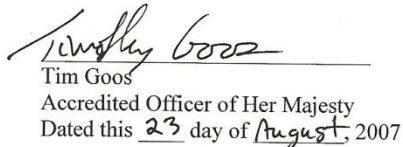 Timothy Goos
Tim Goos
Accredited Officer of Her Majesty
Dated this 23 day of August, 2007